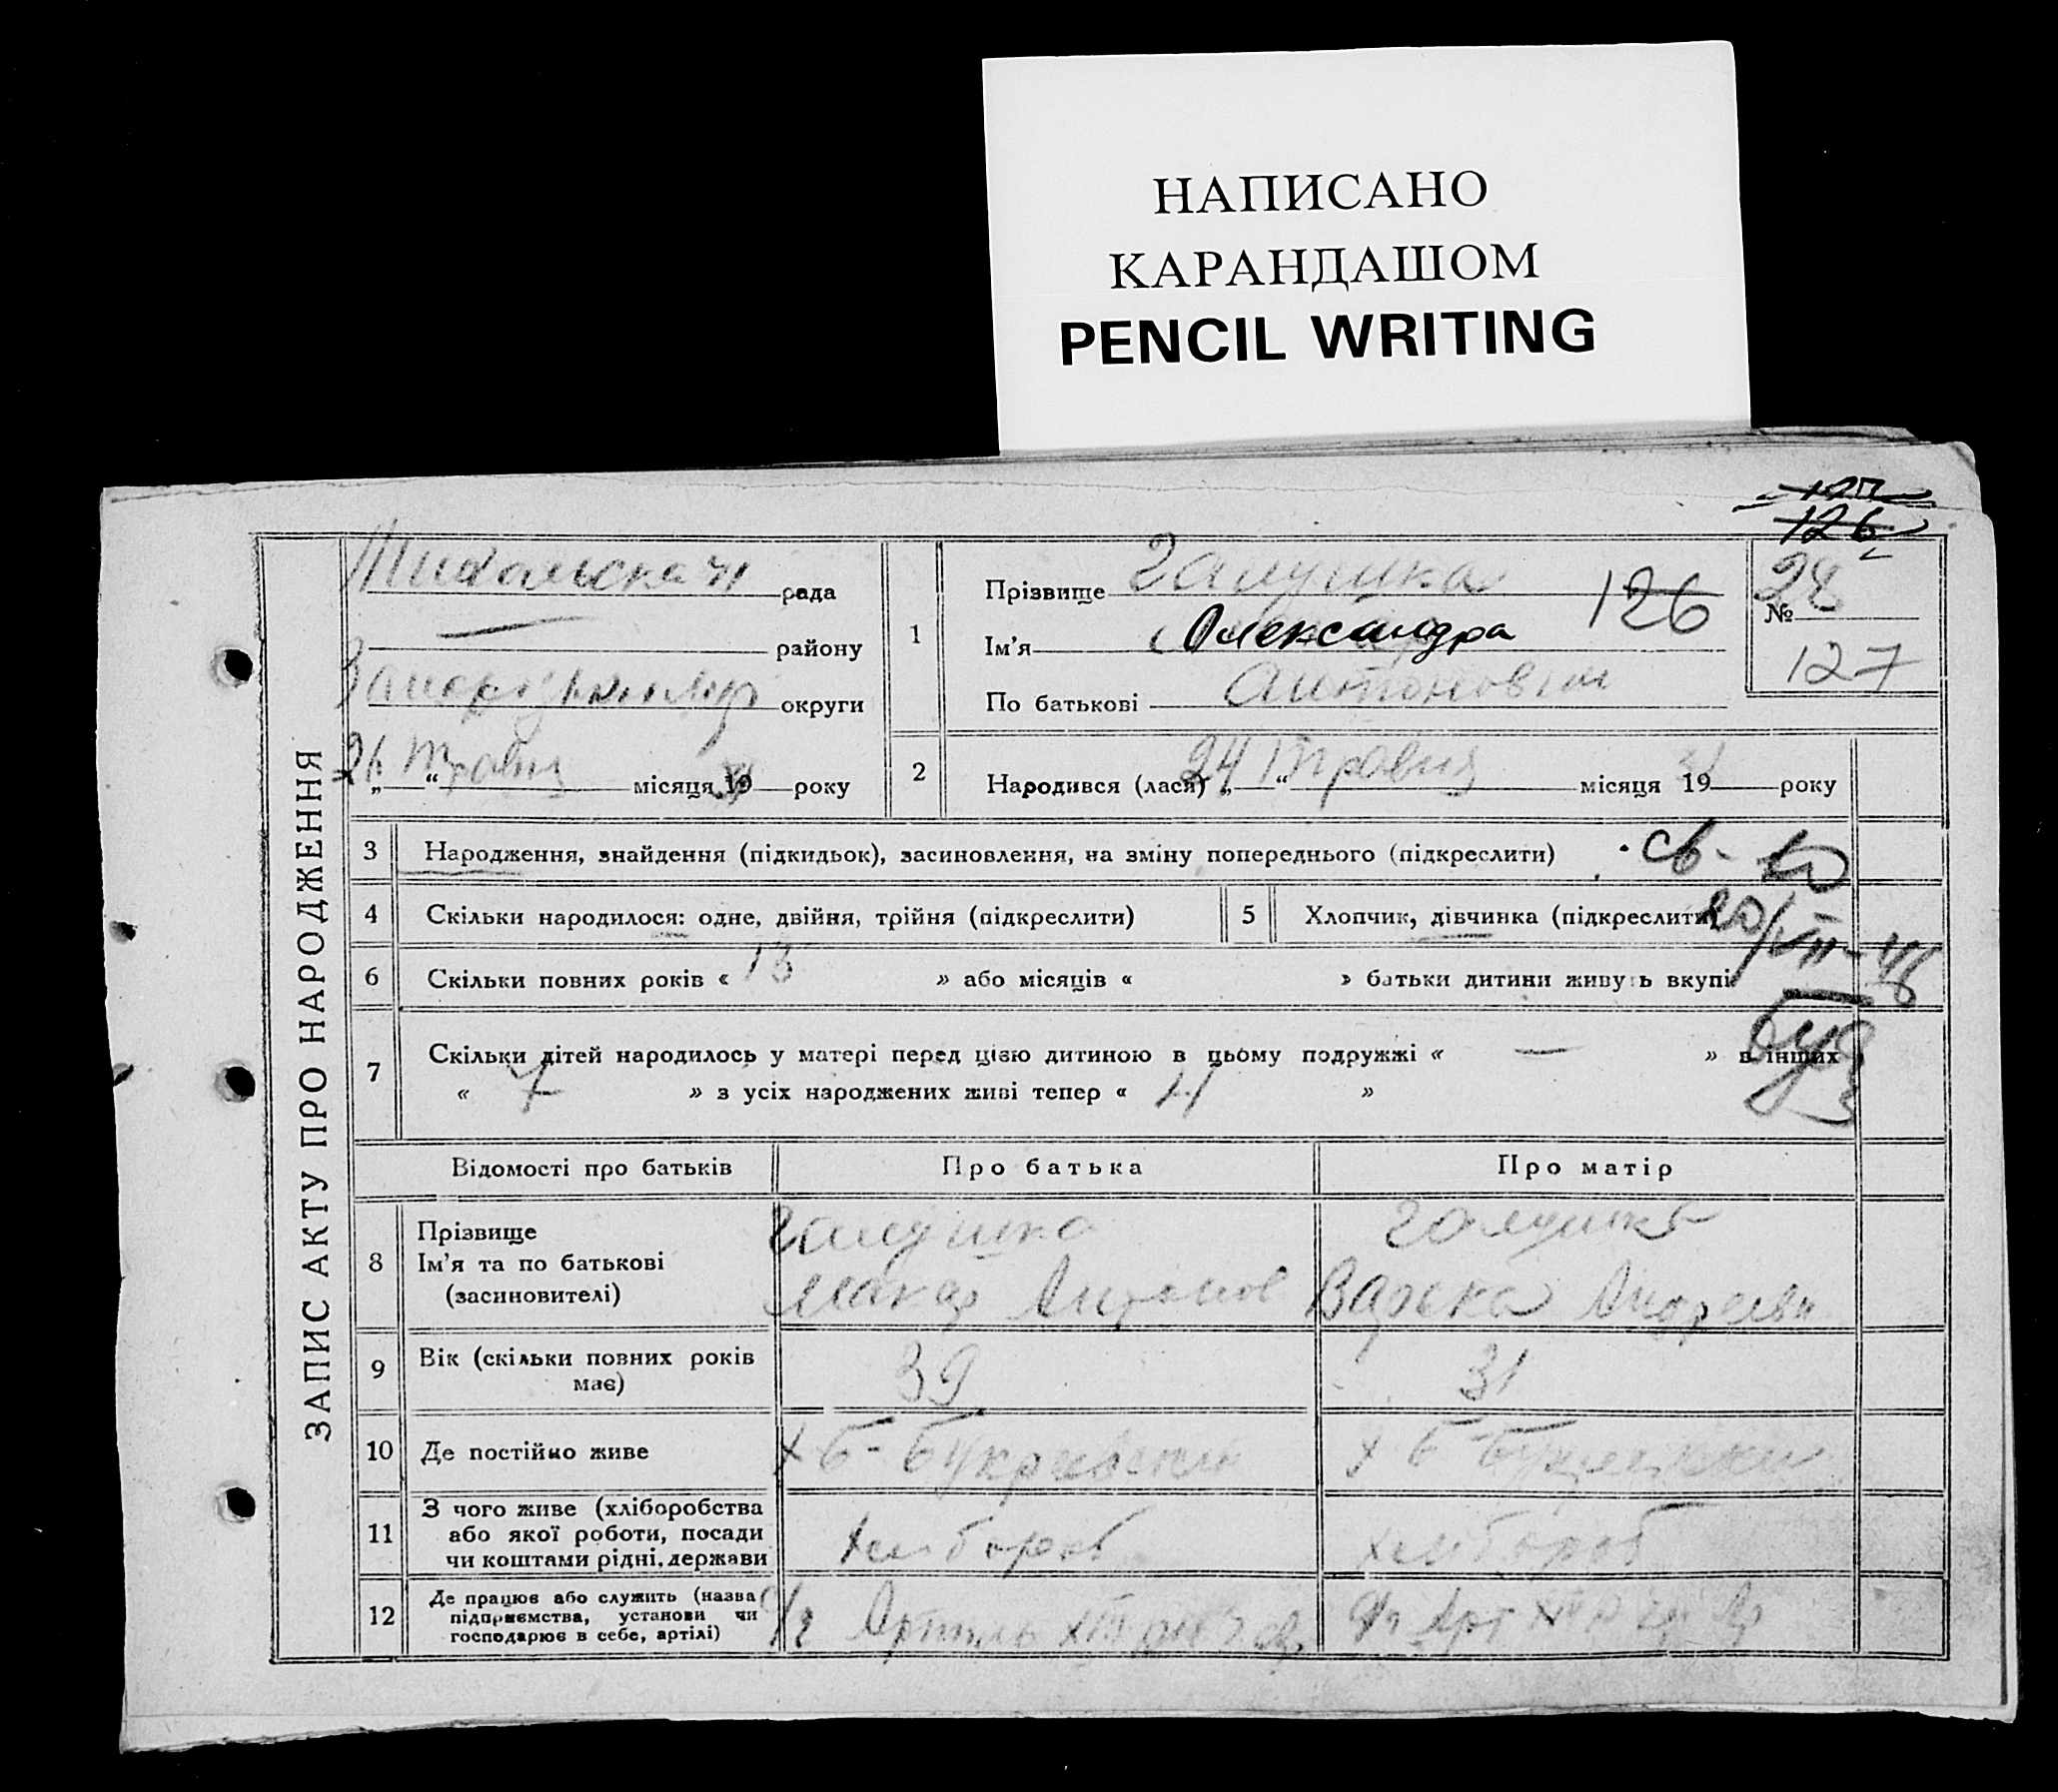 НАПИСАНО
КАРАНДАШОМ
PENCIL WRITING
126
ЗАПИС АКТУ ПРО НАРОДЖЕННЯ
рада
району
округи
26 „ “ Травня місяця 19 31 року
1
Прізвище Галушка 126
Ім'я Олександра
По батькові
28
№
127
2 Народився (лася) „ 24 “ Травня місяця 19 31 року
3 Народження, знайдення (підкидьок), засиновлення, на зміну попереднього (підкреслити) св-во
4 Скільки народилося: одне, двійня, трійня (підкреслити)
5 Хлопчик, дівчинка (підкреслити) 20/VII-46
6 Скільки повних років « 13 » або місяців « » батьки дитини живуть вкупі
7 Скільки дітей народилось у матері перед цією дитиною в цьому подружжі « — » в інших
« 7 » з усіх народжених живі тепер « 4 »
Відомості про батьків Про батька Про матір
8 Прізвище Галушка Галушка
Ім'я та по батькові Макар Антонов Варька Андреевн
(засиновителі)
9 Вік (скільки повних років 39 31
має)
10 Де постійно живе
11 З чого живе (хліборобства
або якої роботи, посади хлібороб хлібороб
чи коштами рідні, держави
12 Де працює або служить (назва
підприємства, установи чи Артиль
господарює в себе, артілі)